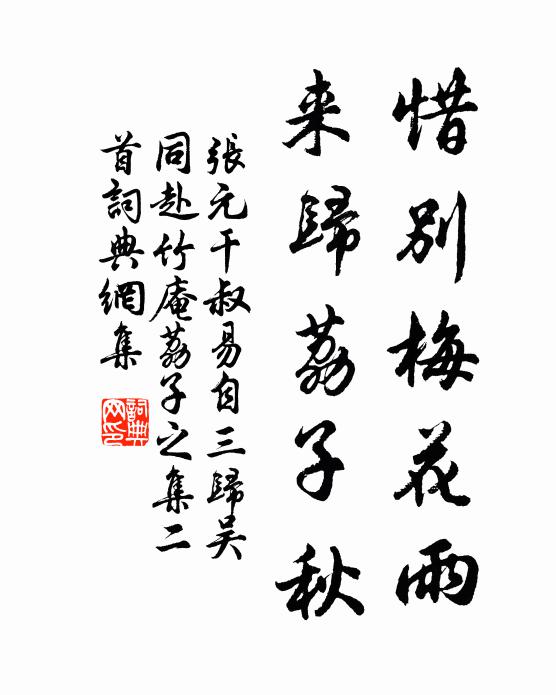 惜別梅花雨
来歸荔子秋
張元干叔易自三歸吴
同赴竹庵荔子之集二
首詞典網集
詞典網印